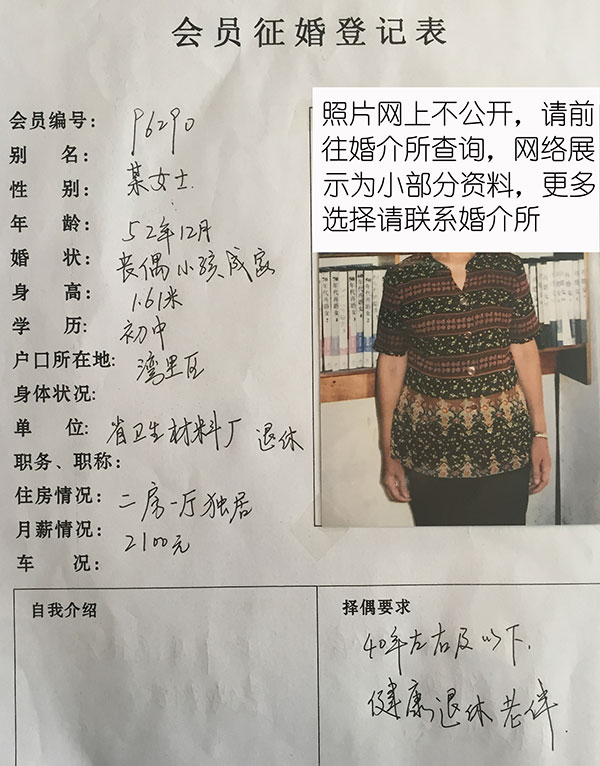 会员征婚登记表
会员编号： 96290
别 名： 某女士
性 别：
年 龄： 52年12月
婚 状： 丧偶 小孩成家
身 高： 1.61米
学 历： 初中
户口所在地： 湾里区
身体状况：
单 位： 省卫生材料厂 退休
职务、职称：
住房情况： 二房一厅独居
月薪情况： 2100元
车 况：
照片网上不公开，请前
往婚介所查询，网络展
示为小部分资料，更多
选择请联系婚介所
自我介绍
择偶要求
40年左右及以下.
健康退休老伴